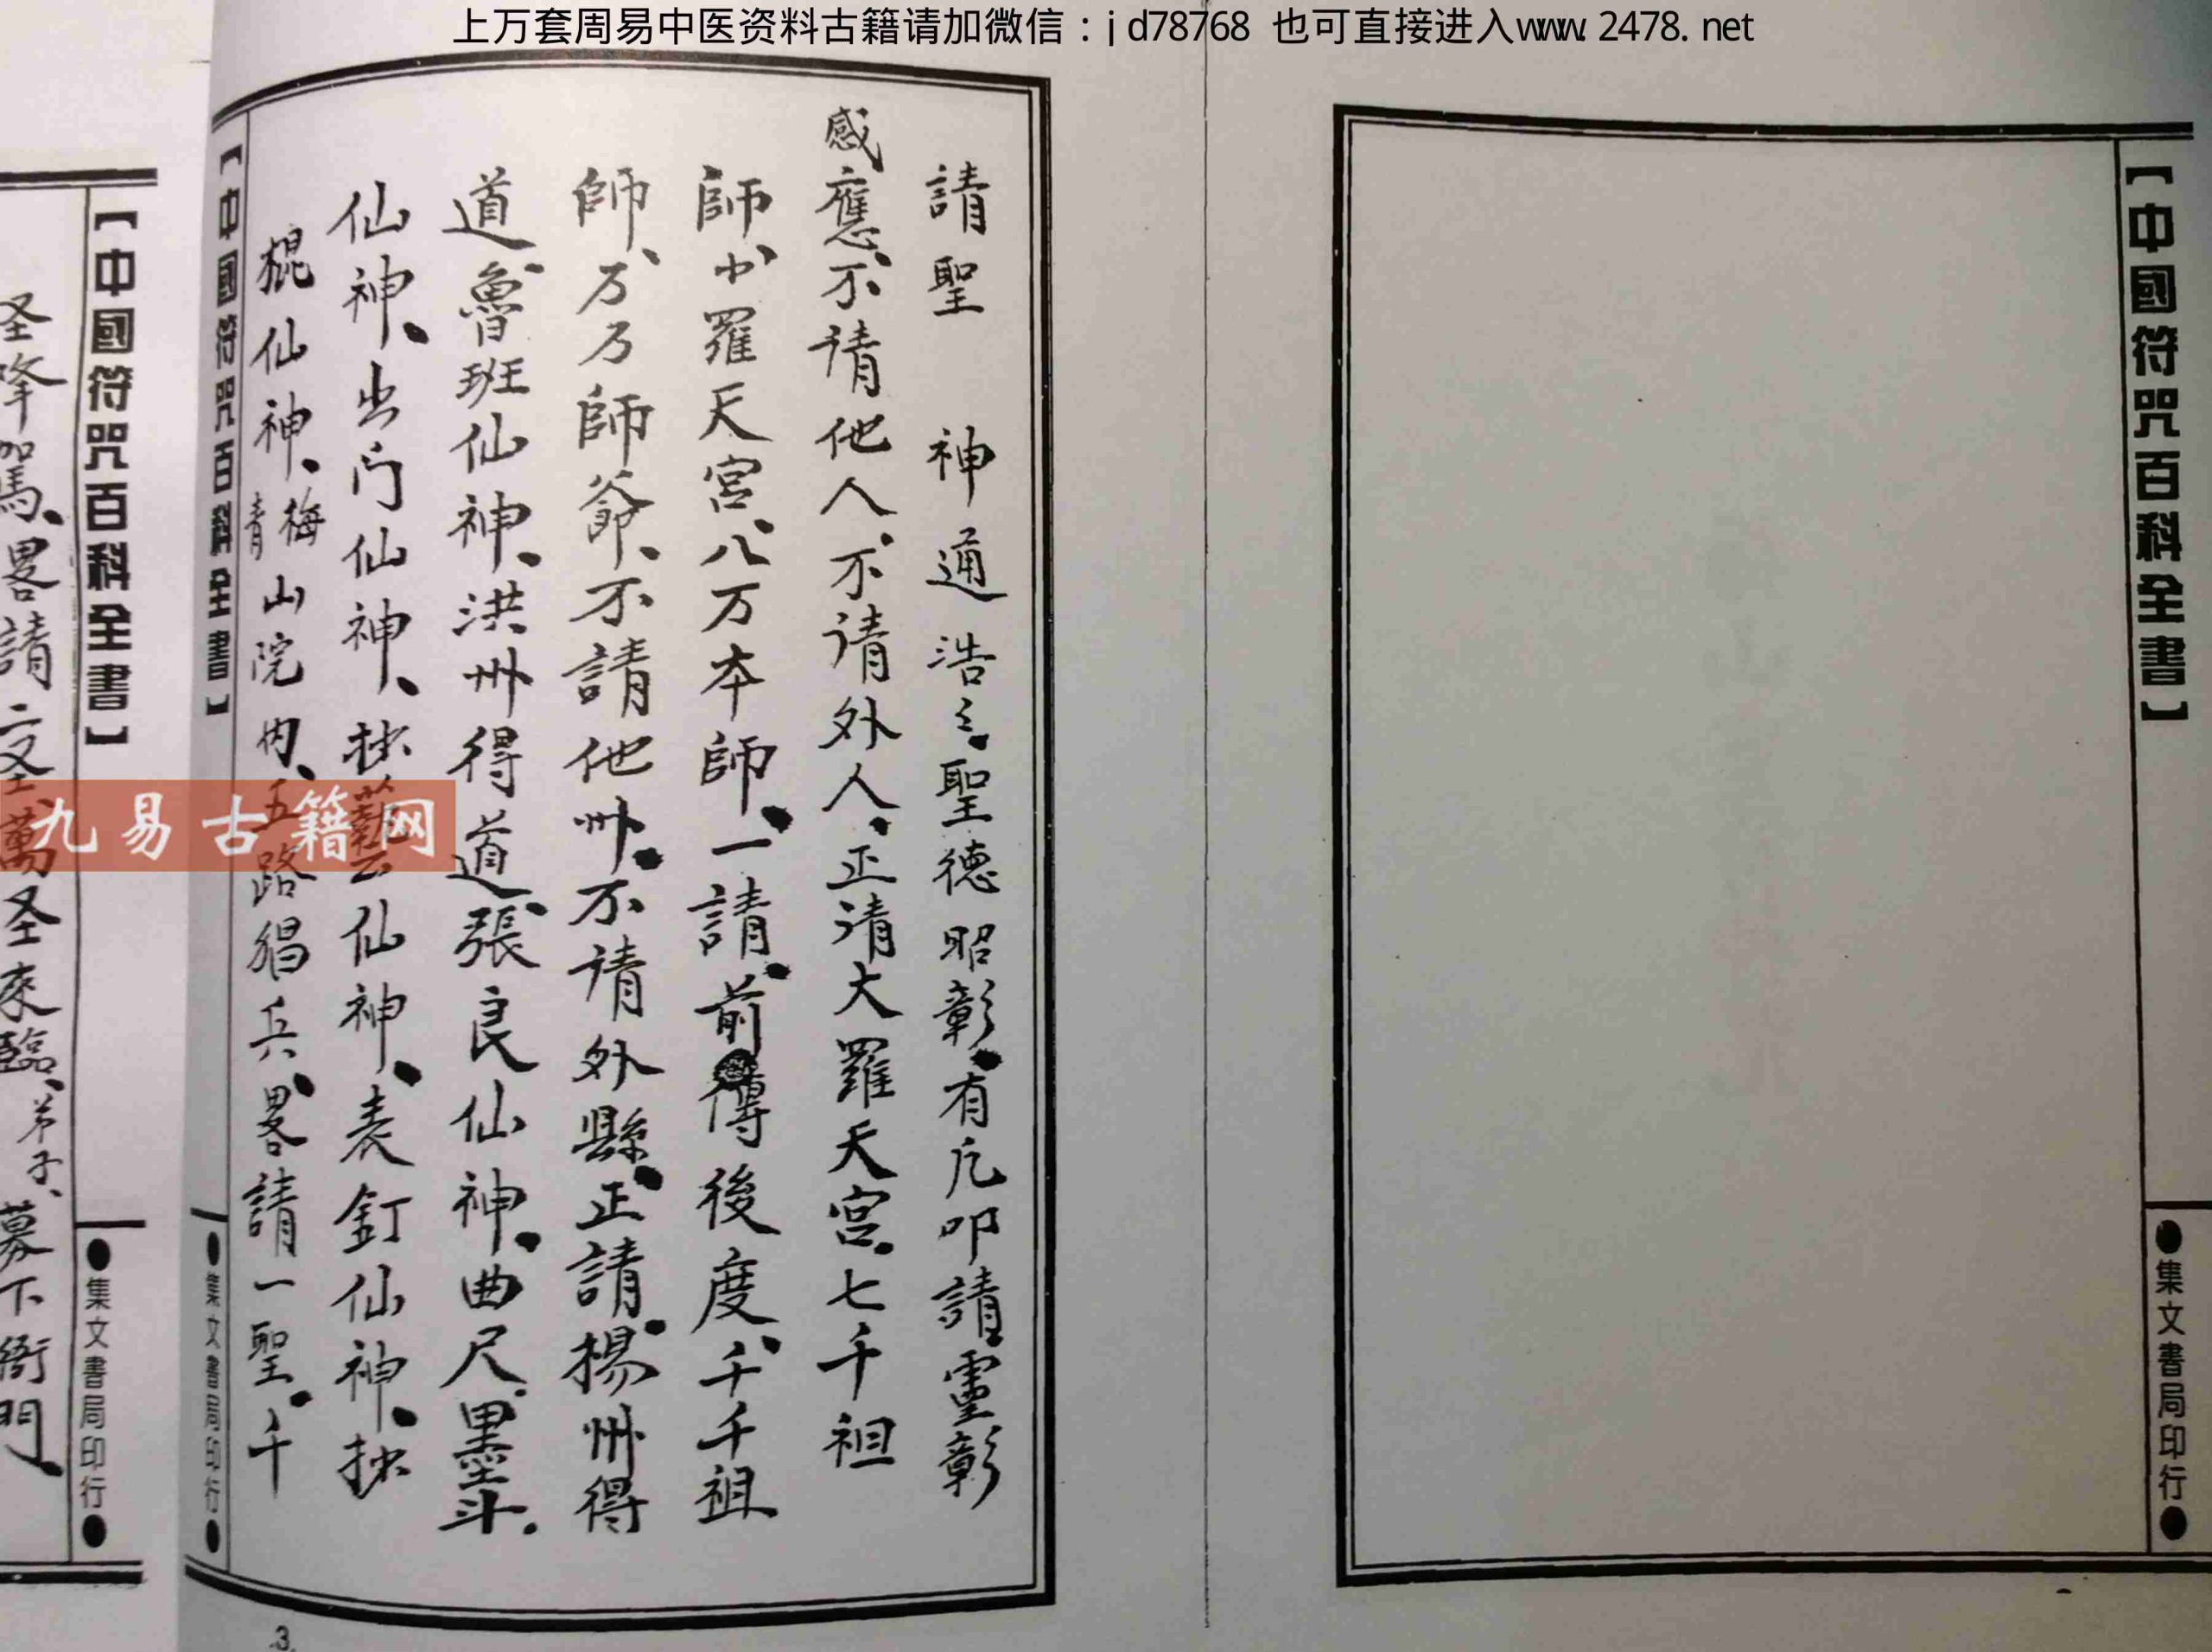 上万套周易中医资料古籍请加微信：jd78768 也可直接进入www.2478.net
【中國符咒百科全書】
●集文書局印行●
請聖　神通浩々、聖德昭彰、有凢叩請、靈彰
感應、不请他人、不请外人、正请大羅天宮、七千祖
師、小羅天宮、八万本師、一請、前傳後度、千千祖
師、万万師爺、不請他州、不请外縣、正請、揚州得
道、魯班仙神、洪州得道、張良仙神、曲尺、墨斗、
仙神、出门仙神、仙神、表釘仙神、
棍仙神、梅青山院内、五路猖兵、畧請一聖、千
【中國符咒百科全書】
●集文書局印行●
3
【中國符咒百科全書】
●集文書局印行●
圣降駕、畧請二圣萬圣來臨、弟子、幕下衙門、
九易古籍网